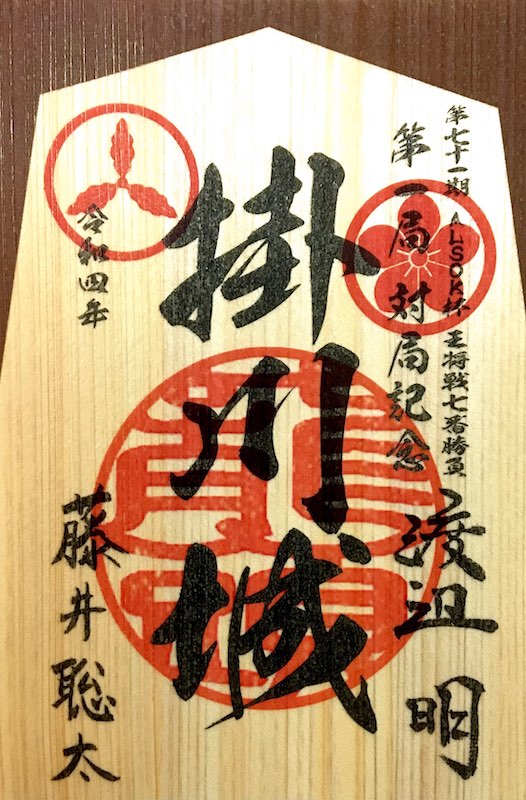 第七十一期 ALSOK杯王将戦七番勝負
第一局 対局記念
渡辺 明
掛川城
令和四年
藤井聡太